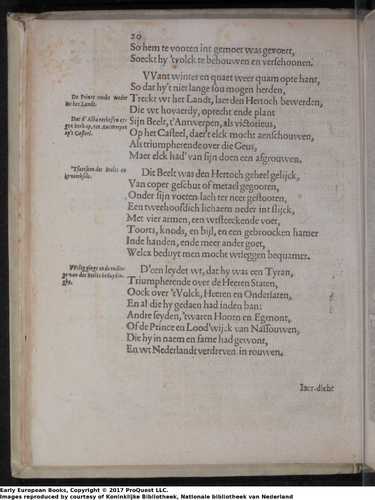 20
So hem te vooren int gemoet was gevoert,
Soeckt hy 'tvolck te behouwen en verschoonen.
VVant winter en quaet weer quam opte hant,
So dat hy't niet lange sou mogen herden,
De Prince rende weder
wt het Landt.
Treckt wt het Landt, laet den Hertoch bewerden,
Die wt hovaerdy, oprecht ende plant
Dat d'Alba
Sijn Beelt, t'Antwerpen, als victorieus,
op't Casteel.
Op het Casteel, daer't elck mocht aenschouwen,
Als triumpherende over die Geus,
Maer elck had' van sijn doen een afgrouwen.
Dit Beelt was den Hertoch geheel gelijck,
Van coper geschut of metael gegooten,
Onder sijn voeten lach ter neer gestooten,
Een tweehoofdich lichaem neder int slijck,
Met vier armen, een wtsteeckende voer,
Toorts, knods, en bijl, en een gebroocken hamer
Inde handen, ende meer ander goet,
Welcx beduyt men mocht wtleggen bequamer.
D'een leydet wt, dat hy was een Tyran,
Triumpherende over de Heeren Staten,
Oock over 'tVolck, Heeren en Ondersaten,
En al die hy gedaen had inden ban:
Andre seyden, 'twaren Hooren en Egmont,
Of de Prince en Lood'wijck van Nassouwen,
Die hy in naem en fame had gewont,
En wt Nederlandt verdreven in rouwen.
Iaer-dicht
Early European Books, Copyright © 2017 ProQuest LLC.
Images reproduced by courtesy of Koninklijke Bibliotheek, Nationale bibliotheek van Nederland